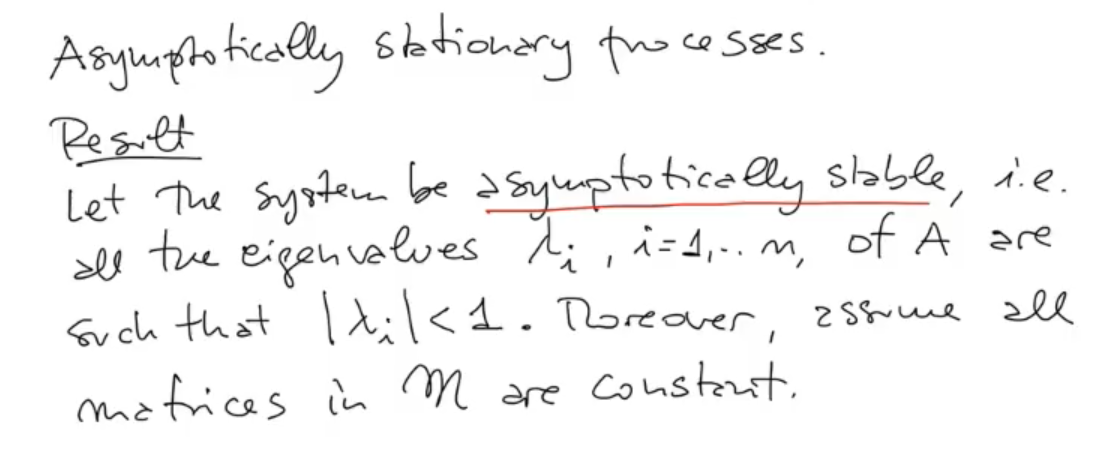 Asymptotically stationary processes.
Result
Let the system be asymptotically stable, i.e.
all the eigenvalues λᵢ, i=1,.. n, of A are
such that |λᵢ|<1. Moreover, assume all
matrices in M are constant.